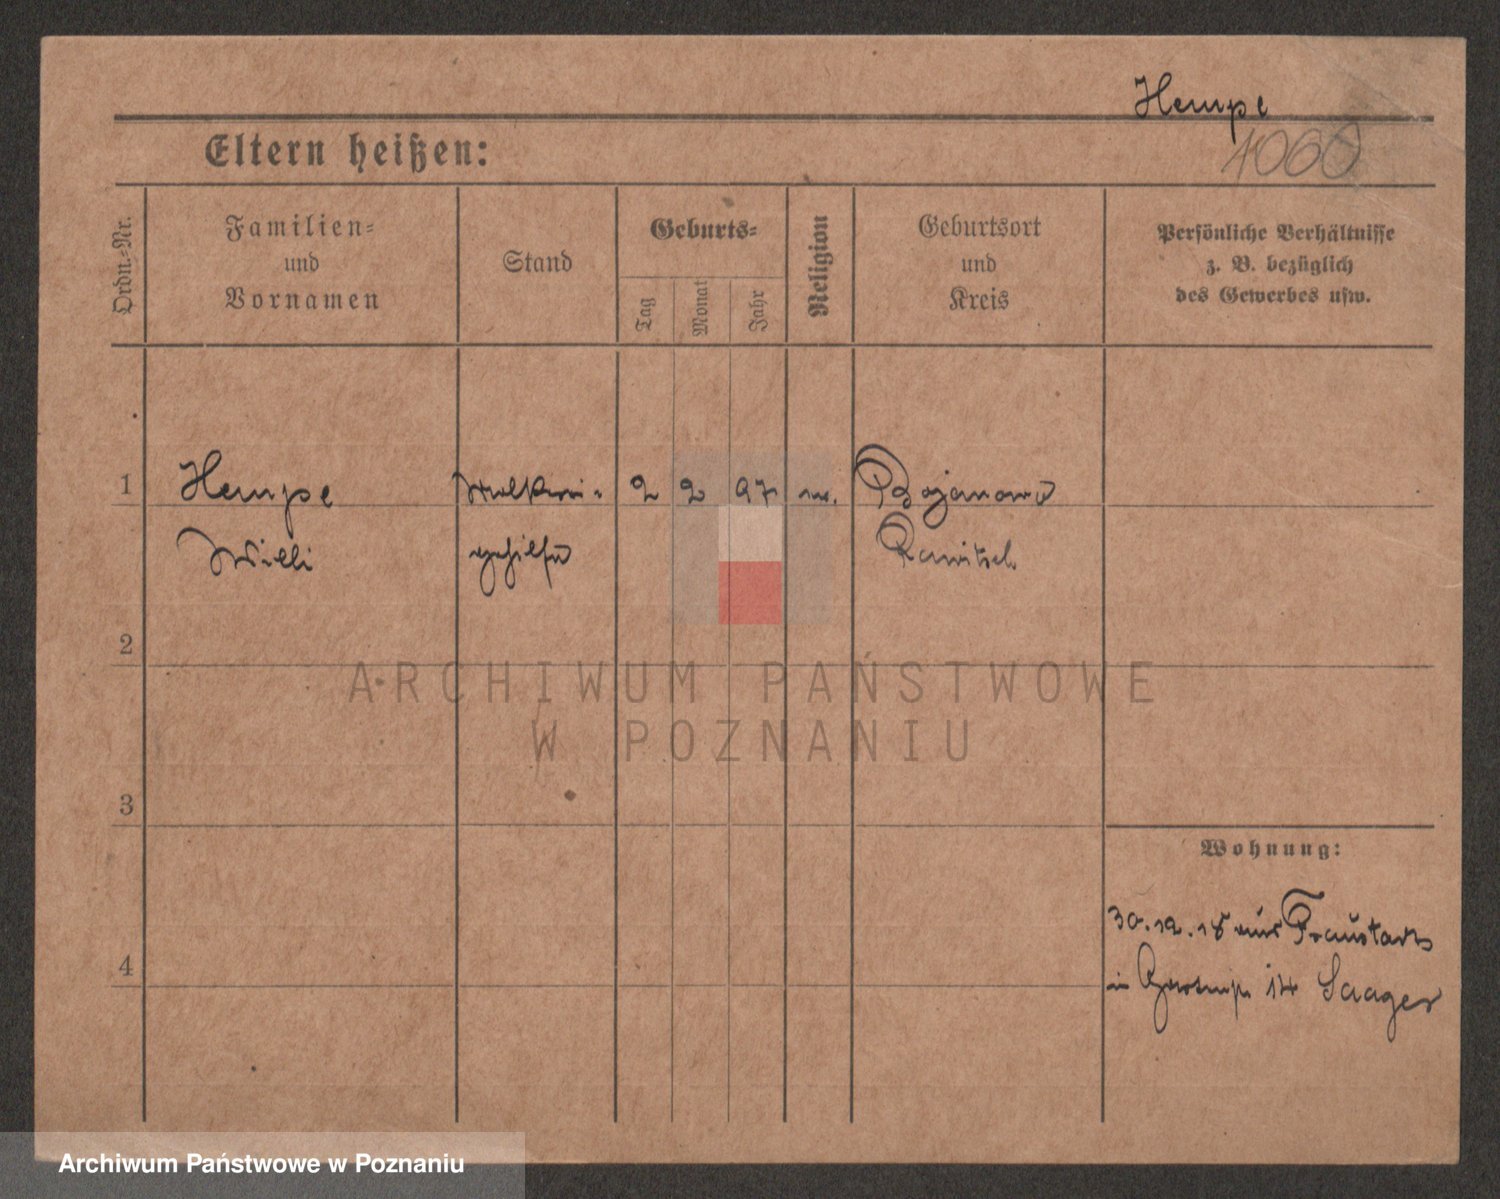 Hempe
1060
Eltern heißen:
Ordn.-Nr.
Familien-
und
Vornamen
Stand
Geburts-
Tag
Monat
Jahr
Religion
Geburtsort
und
Kreis
Persönliche Verhältnisse
z. B. bezüglich
des Gewerbes usw.
1
Hempe
Molkerei-
2
2
97
Bojanowo
Willi
gehilfe
Rawitsch
2
ARCHIWUM PAŃSTWOWE
W POZNANIU
3
Wohnung:
30.12.18 aus Fraustadt
4
in 14 Saager
Archiwum Państwowe w Poznaniu